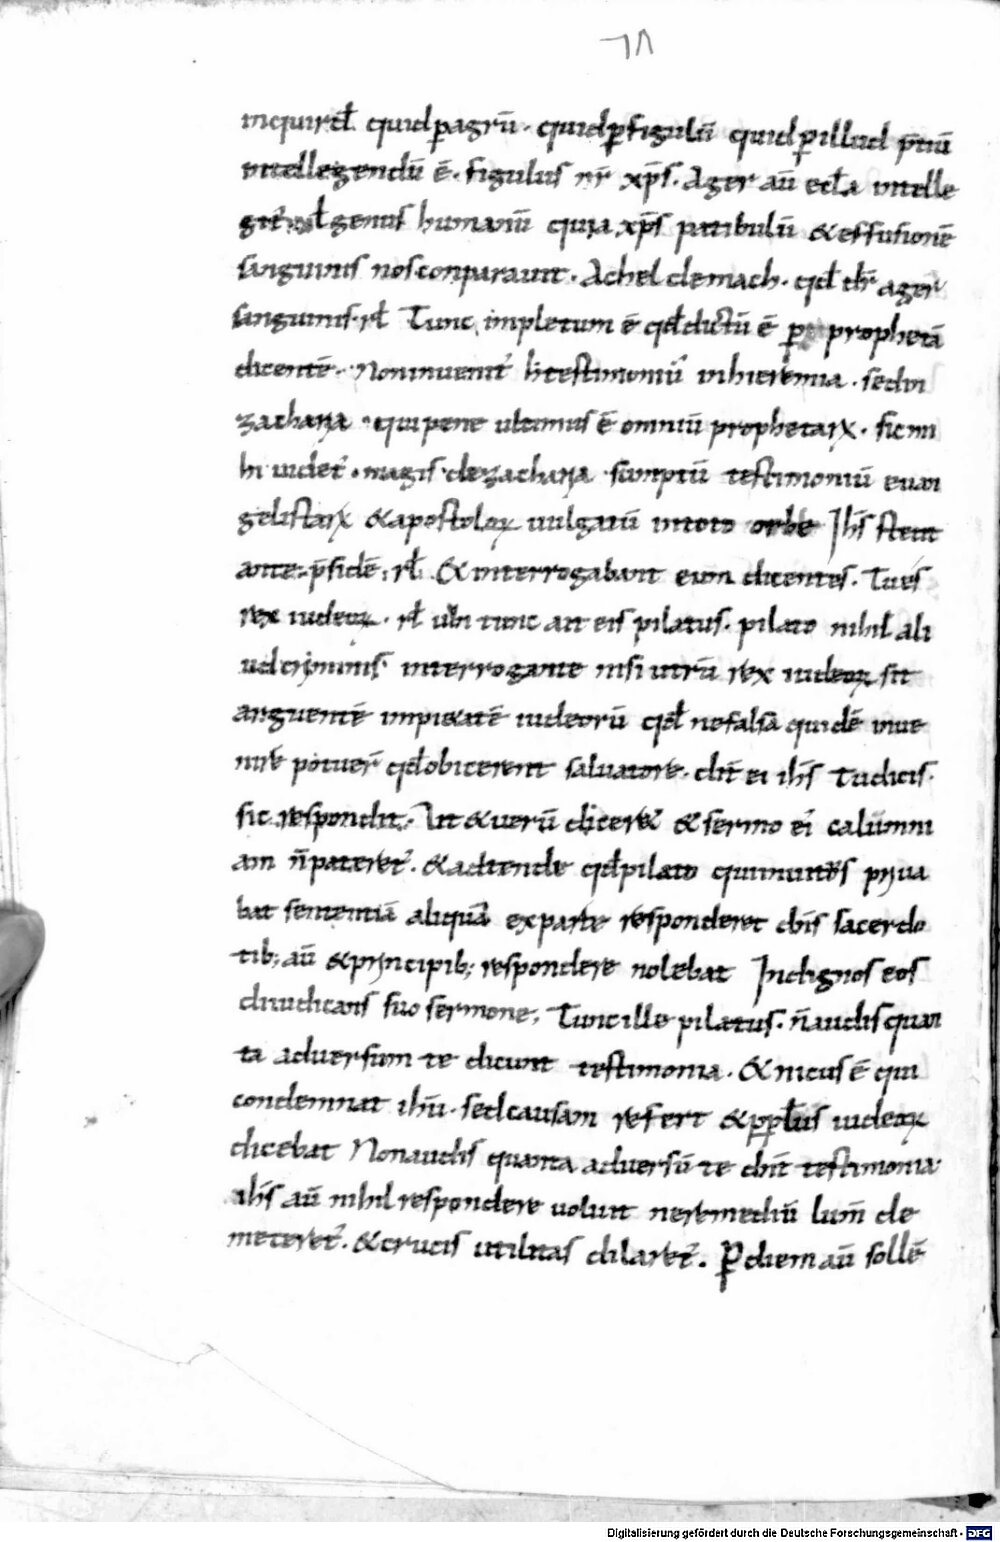 inquirit̄ quid p̲ agrū · quid p̲ figulū quid p̲ illud p̄tiū
intellegendū ē · figulus nr̄ xp̄s · Ager aū eccl̄a intelle
genus humanū quia xp̄s patibulū & effusionē
sanguinis nos conparauit · Acheldemach · qđ dr̄ ager
sanguinis · rł Tunc impletum ē qđ dictū ē p̲ prophetā
dicentē · Non inuenit̉ testimoniū in hieremia · sed in
zacharia · qui pene ultimus ē omniū prophetaꝝ · sic mi
hi uidet̉ · magis de zacharia sumptū testimoniū euan
gelistaꝝ & apostoloꝝ uulgatū in toto orbe Ih̄s stetit
ante p̄sidē · rł · & interrogabant eum dicentes · Tu es
rex iudeoꝝ · rł tunc ait eis pilatus · pilato nihil ali
ud criminis · interrogante nisi utrū rex iudeoꝝ sit
arguentē impietatē iudeorū qđ ne falsā quidē inue
nire potuer̄ qđ obicerent saluatore · dix̄ ei ih̄s Tu dicis ·
sic respondit · Ut & uerū diceret & sermo ei' calumni
am n̄ pateret̉ · & adtende qđ pilato qui inuitus priua
bat sententiā aliquā ex parte responderet sacerdo
tib; aū & principib; respondere nolebat Indignos eos
diiudicans suo sermone, Tunc ille pilatus · n̄ audis quan
ta aduersum te dicunt testimonia · & nicus ē qui
condemnat ih̄u · sed causam refert & pp̄lus iudeoꝝ
dicebat Non audis quanta aduersū te testimonia
ih̄s aū nihil respondere uoluit ne remediū de
meteret̉ · & crucis utilitas dilaret̉ · P̲ diem aū sollē
Digitalisierung gefördert durch die Deutsche Forschungsgemeinschaft - DFG